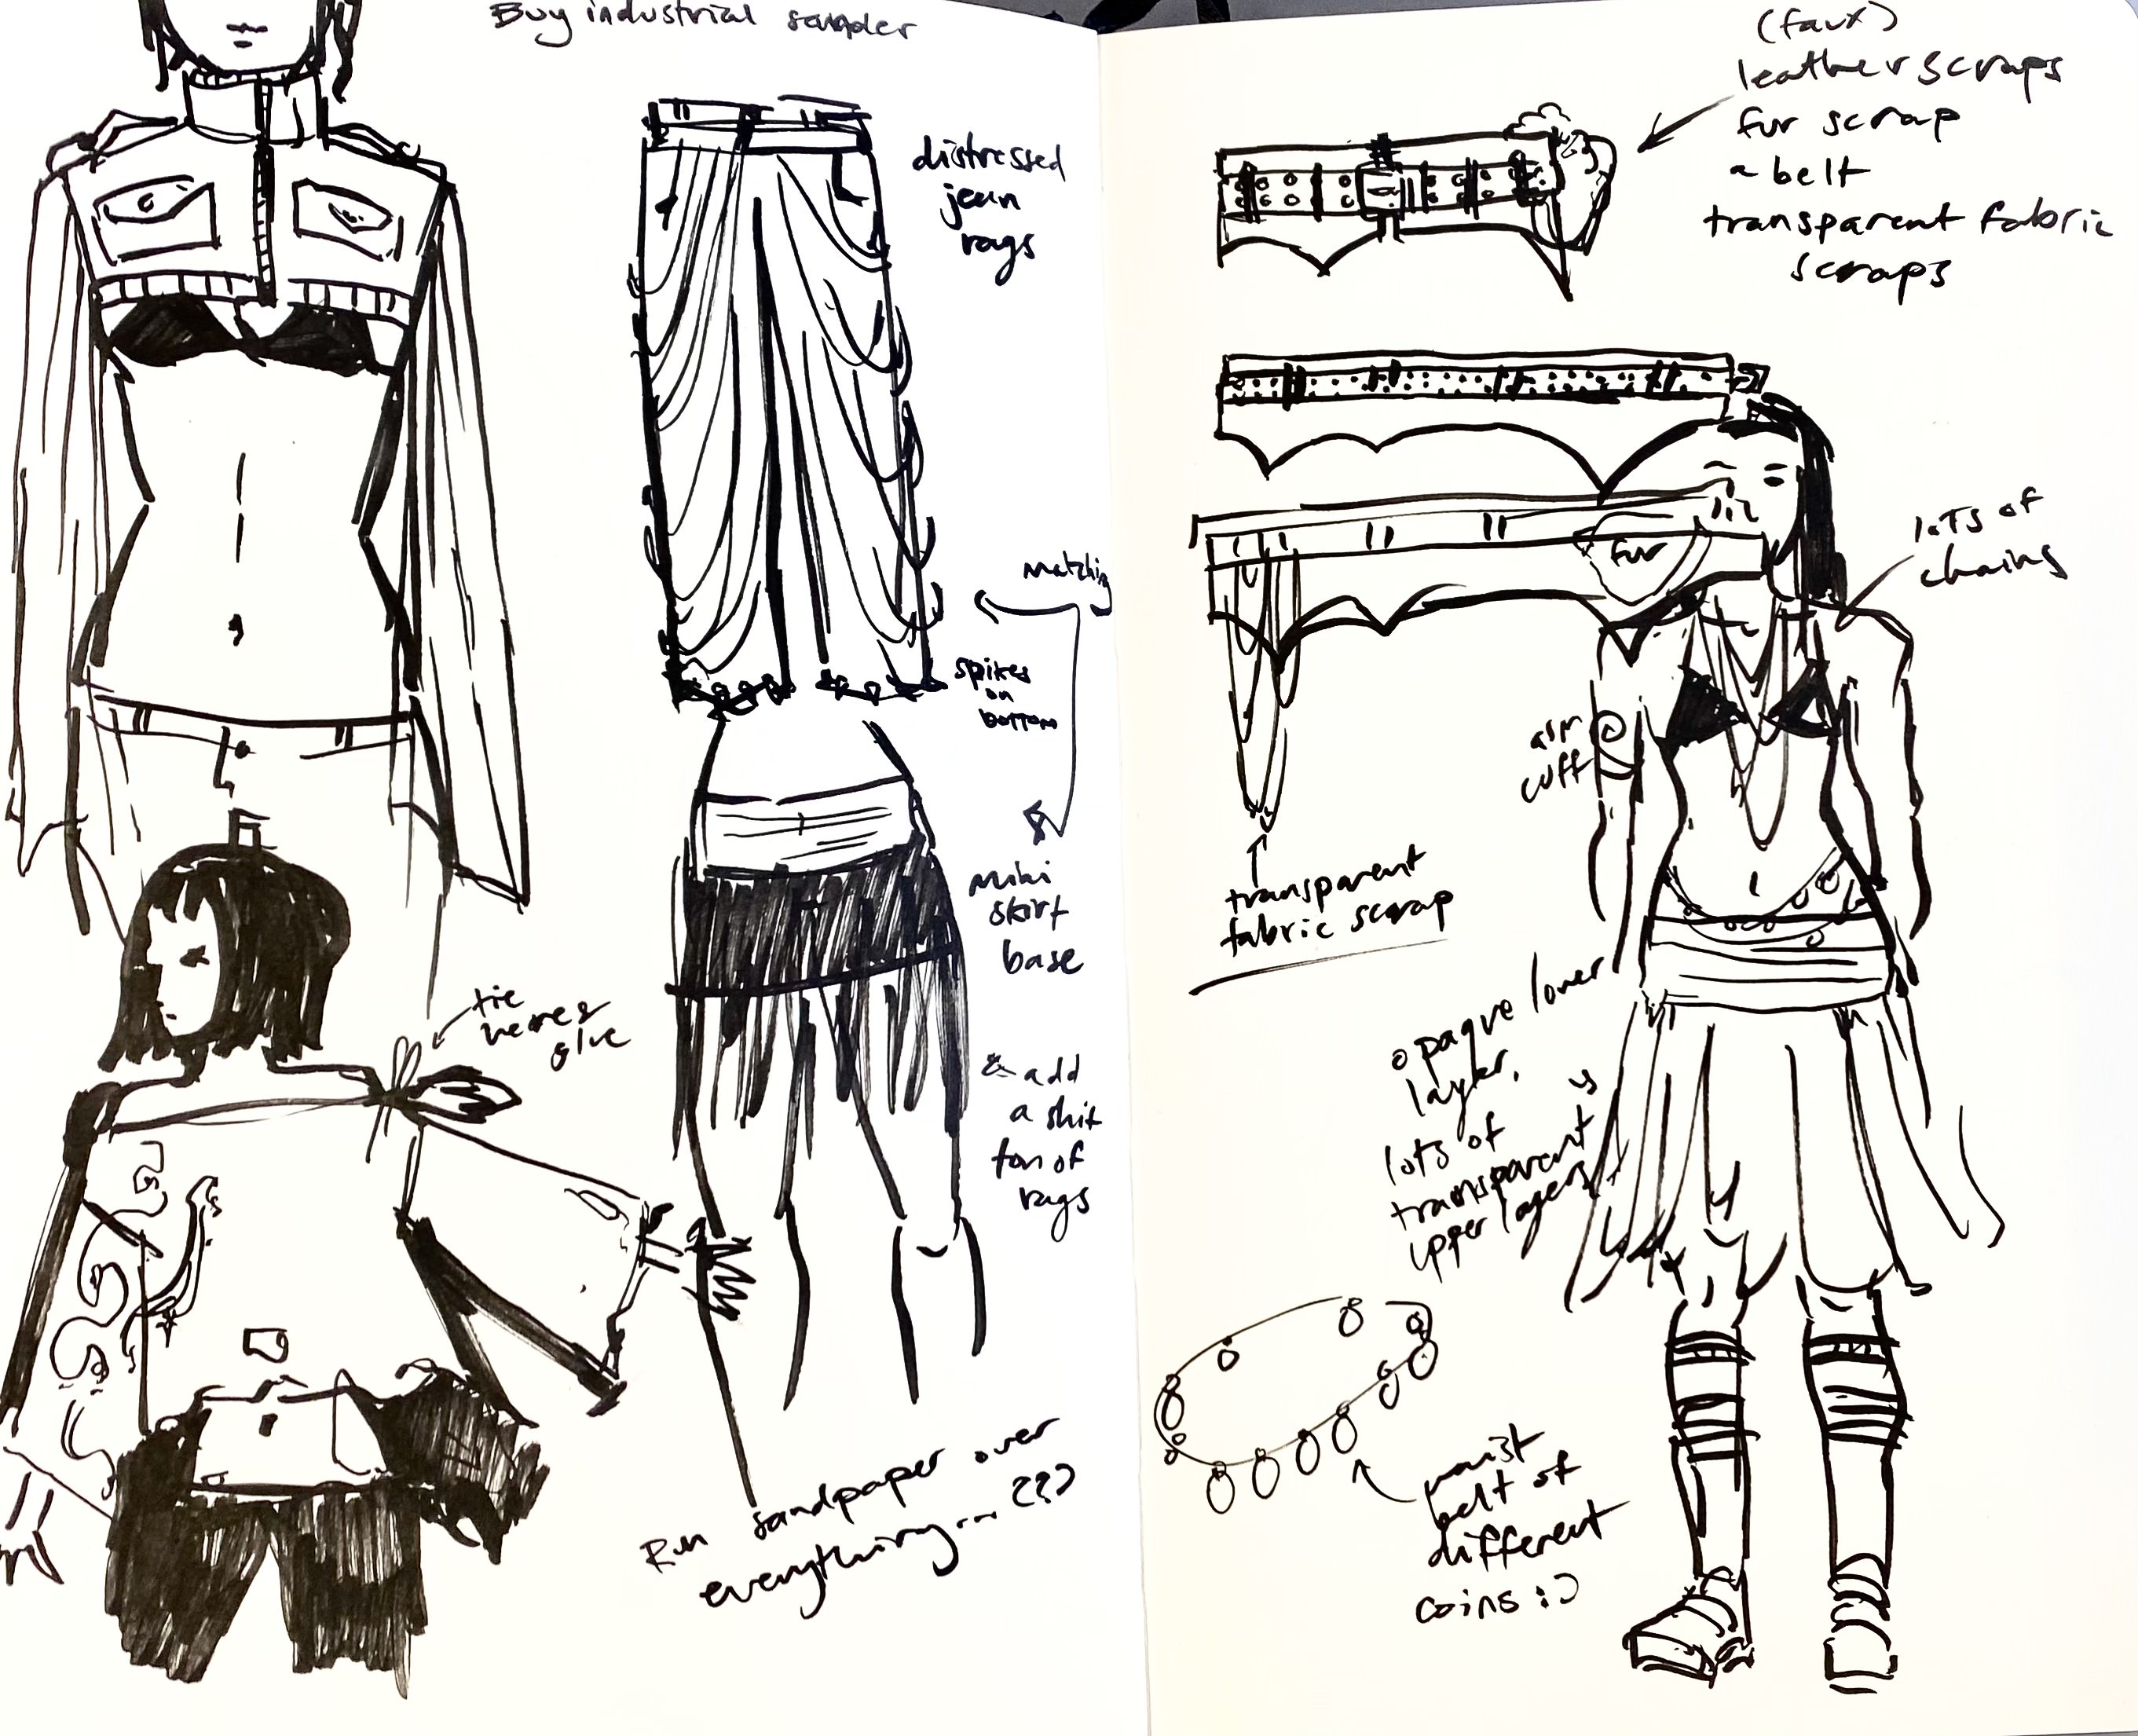 Buy industrial sander
distressed
jean
rags
matching
spikes
on
bottom
mini
skirt
base
& add
a shit
ton of
rags
tie
here &
glue
Run sandpaper over
everything... ???
(faux)
leather scraps
fur scrap
a belt
transparent fabric
scraps
fur
lots of
chains
arm
cuff
transparent
fabric scrap
opaque lower
layer,
lots of
transparent
upper layers
waist
belt of
different
coins :)